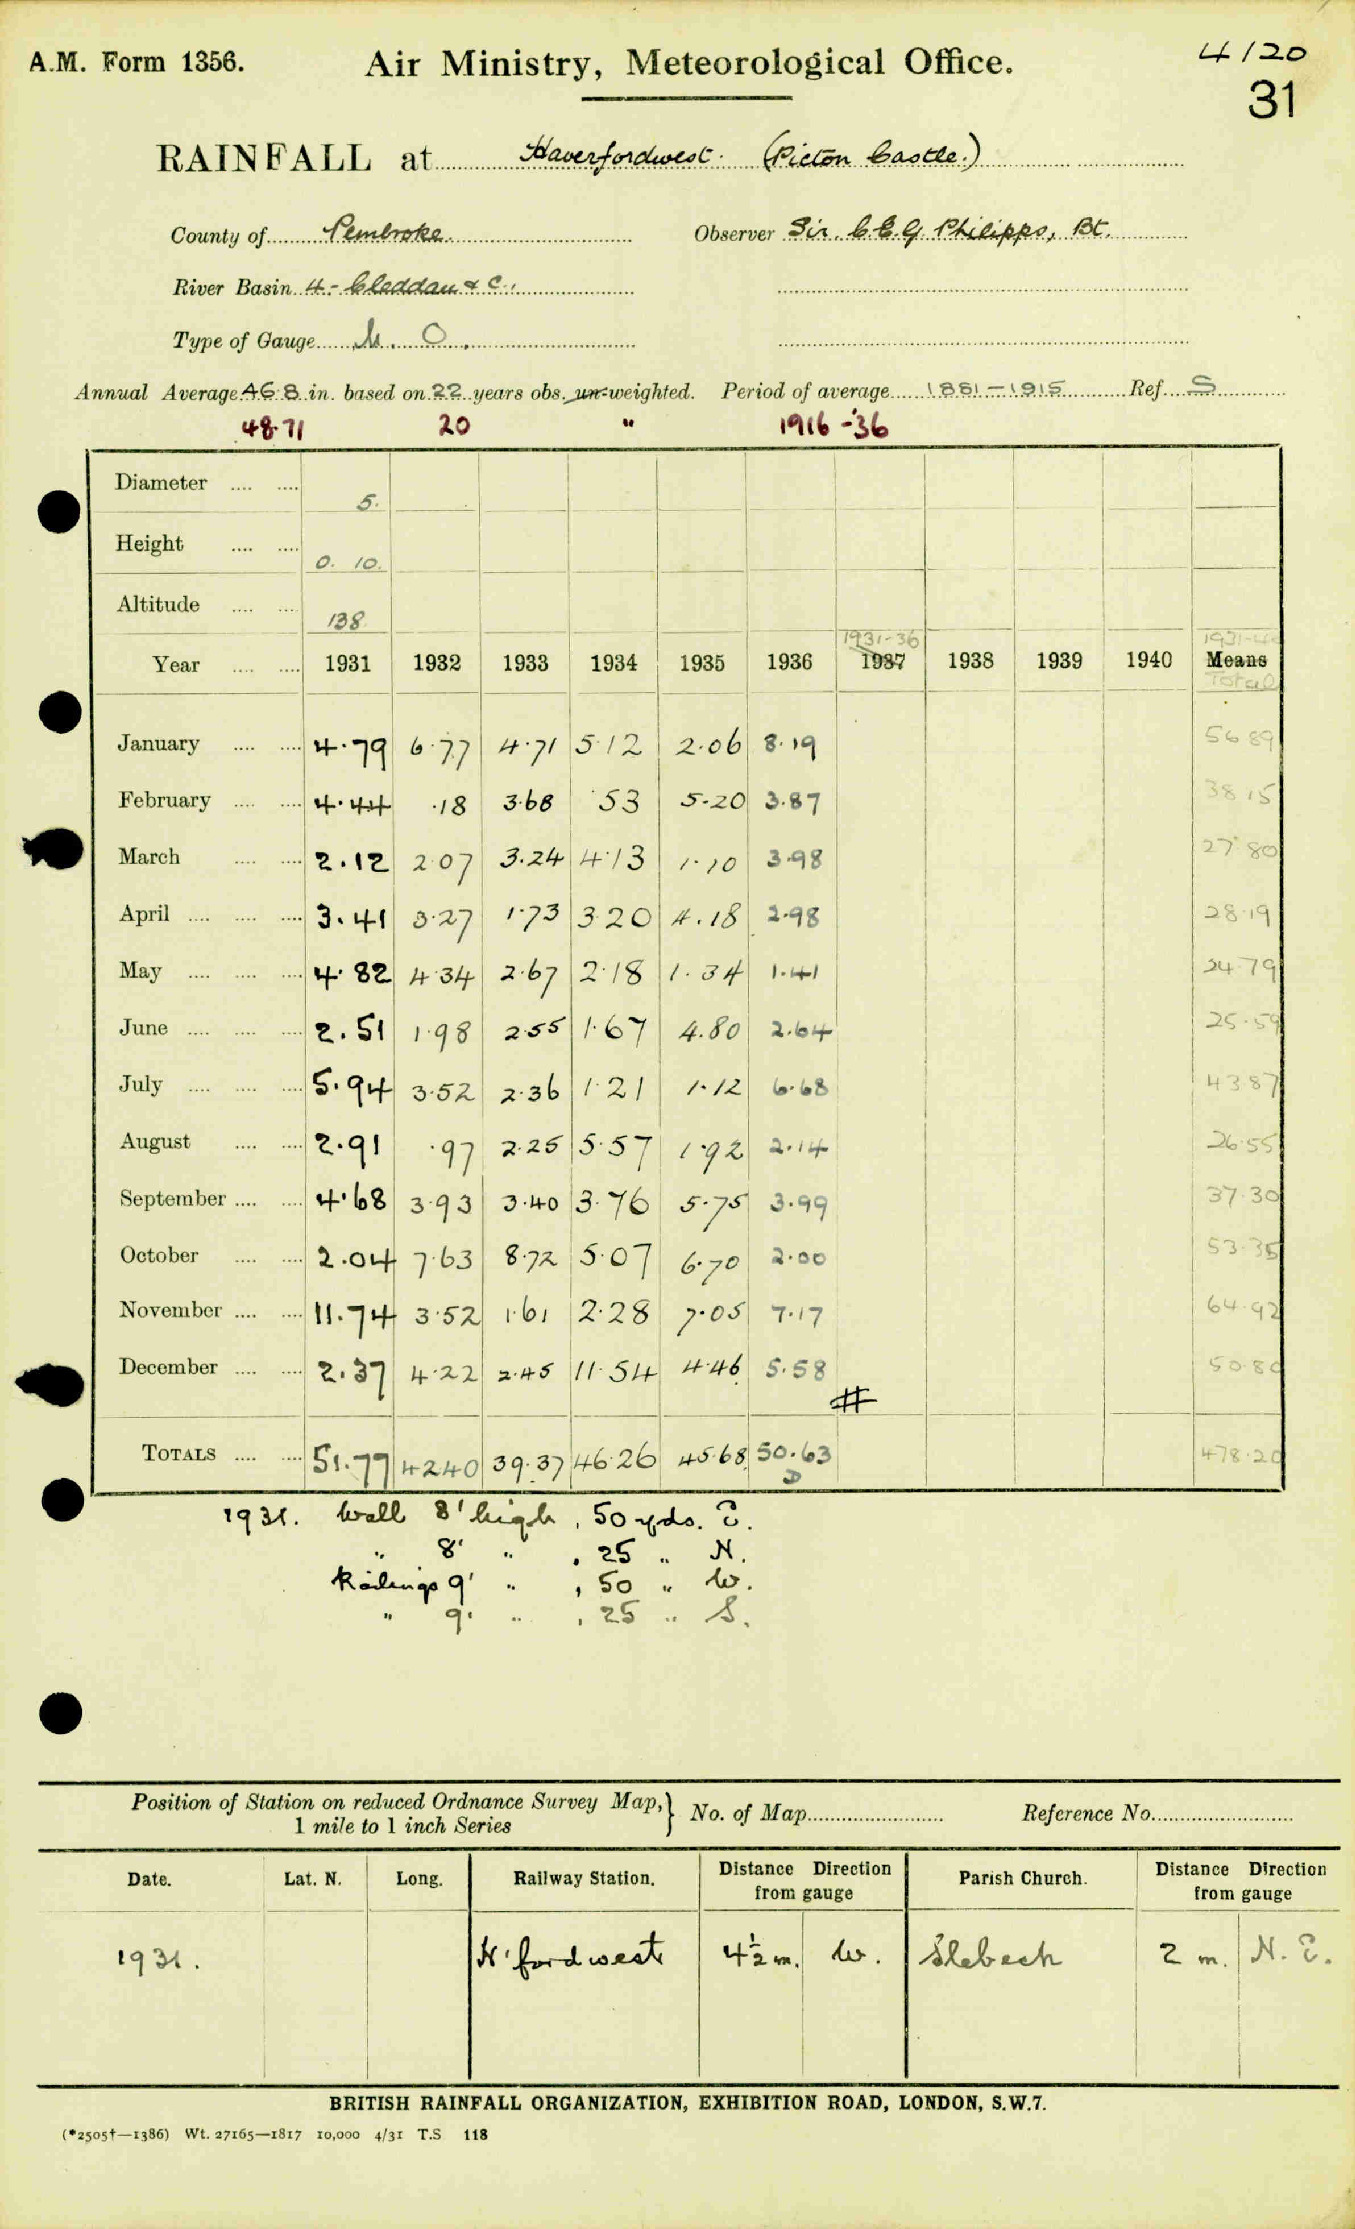 A.M. Form 1356. Air Ministry, Meteorological Office. 4120
31
RAINFALL at Haverfordwest. (Picton Castle.)
County of Pembroke. Observer Sir. C.E.G. Philipps, Bt.
River Basin 4.- Cleddau & C.
Type of Gauge M. O.
Annual Average 46.8 in. based on 22 years obs. un-weighted. Period of average 1881-1915 Ref. S
48.71 20 " 1916-'36
Diameter .... .... 5.
Height .... .... 0. 10.
Altitude .... .... 138
1931-36 1931-40
Year .... .... 1931 1932 1933 1934 1935 1936 1937 1938 1939 1940 Means
Total
January .... .... 4.79 6.77 4.71 5.12 2.06 8.19 56.89
February .... .... 4.44 .18 3.68 .53 5.20 3.87 38.15
March .... .... 2.12 2.07 3.24 4.13 1.10 3.98 27.80
April .... .... .... 3.41 3.27 1.73 3.20 4.18 2.98 28.19
May .... .... .... 4.82 4.34 2.67 2.18 1.34 1.41 24.79
June .... .... .... 2.51 1.98 2.55 1.67 4.80 2.64 25.59
July .... .... .... 5.94 3.52 2.36 1.21 1.12 6.68 43.87
August .... .... 2.91 .97 2.25 5.57 1.92 2.14 26.55
September .... .... 4.68 3.93 3.40 3.76 5.75 3.99 37.30
October .... .... 2.04 7.63 8.72 5.07 6.70 2.00 53.35
November .... .... 11.74 3.52 1.61 2.28 7.05 7.17 64.92
December .... .... 2.37 4.22 2.45 11.54 4.46 5.58 50.80
#
TOTALS .... .... 51.77 42.40 39.37 46.26 45.68 50.63 478.20
D
1931. Wall 8' high, 50 yds. E.
" 8' " , 25 " N.
Railings 9' " , 50 " W.
" 9' " , 25 " S.
Position of Station on reduced Ordnance Survey Map, } No. of Map Reference No.
1 mile to 1 inch Series
Date. Lat. N. Long. Railway Station. Distance Direction from gauge Parish Church. Distance Direction from gauge
1931. H'fordwest 4½ m. W. Slebech 2 m. N. E.
BRITISH RAINFALL ORGANIZATION, EXHIBITION ROAD, LONDON, S.W.7.
(*2505†—1386) Wt. 27165—1817 10,000 4/31 T.S 118